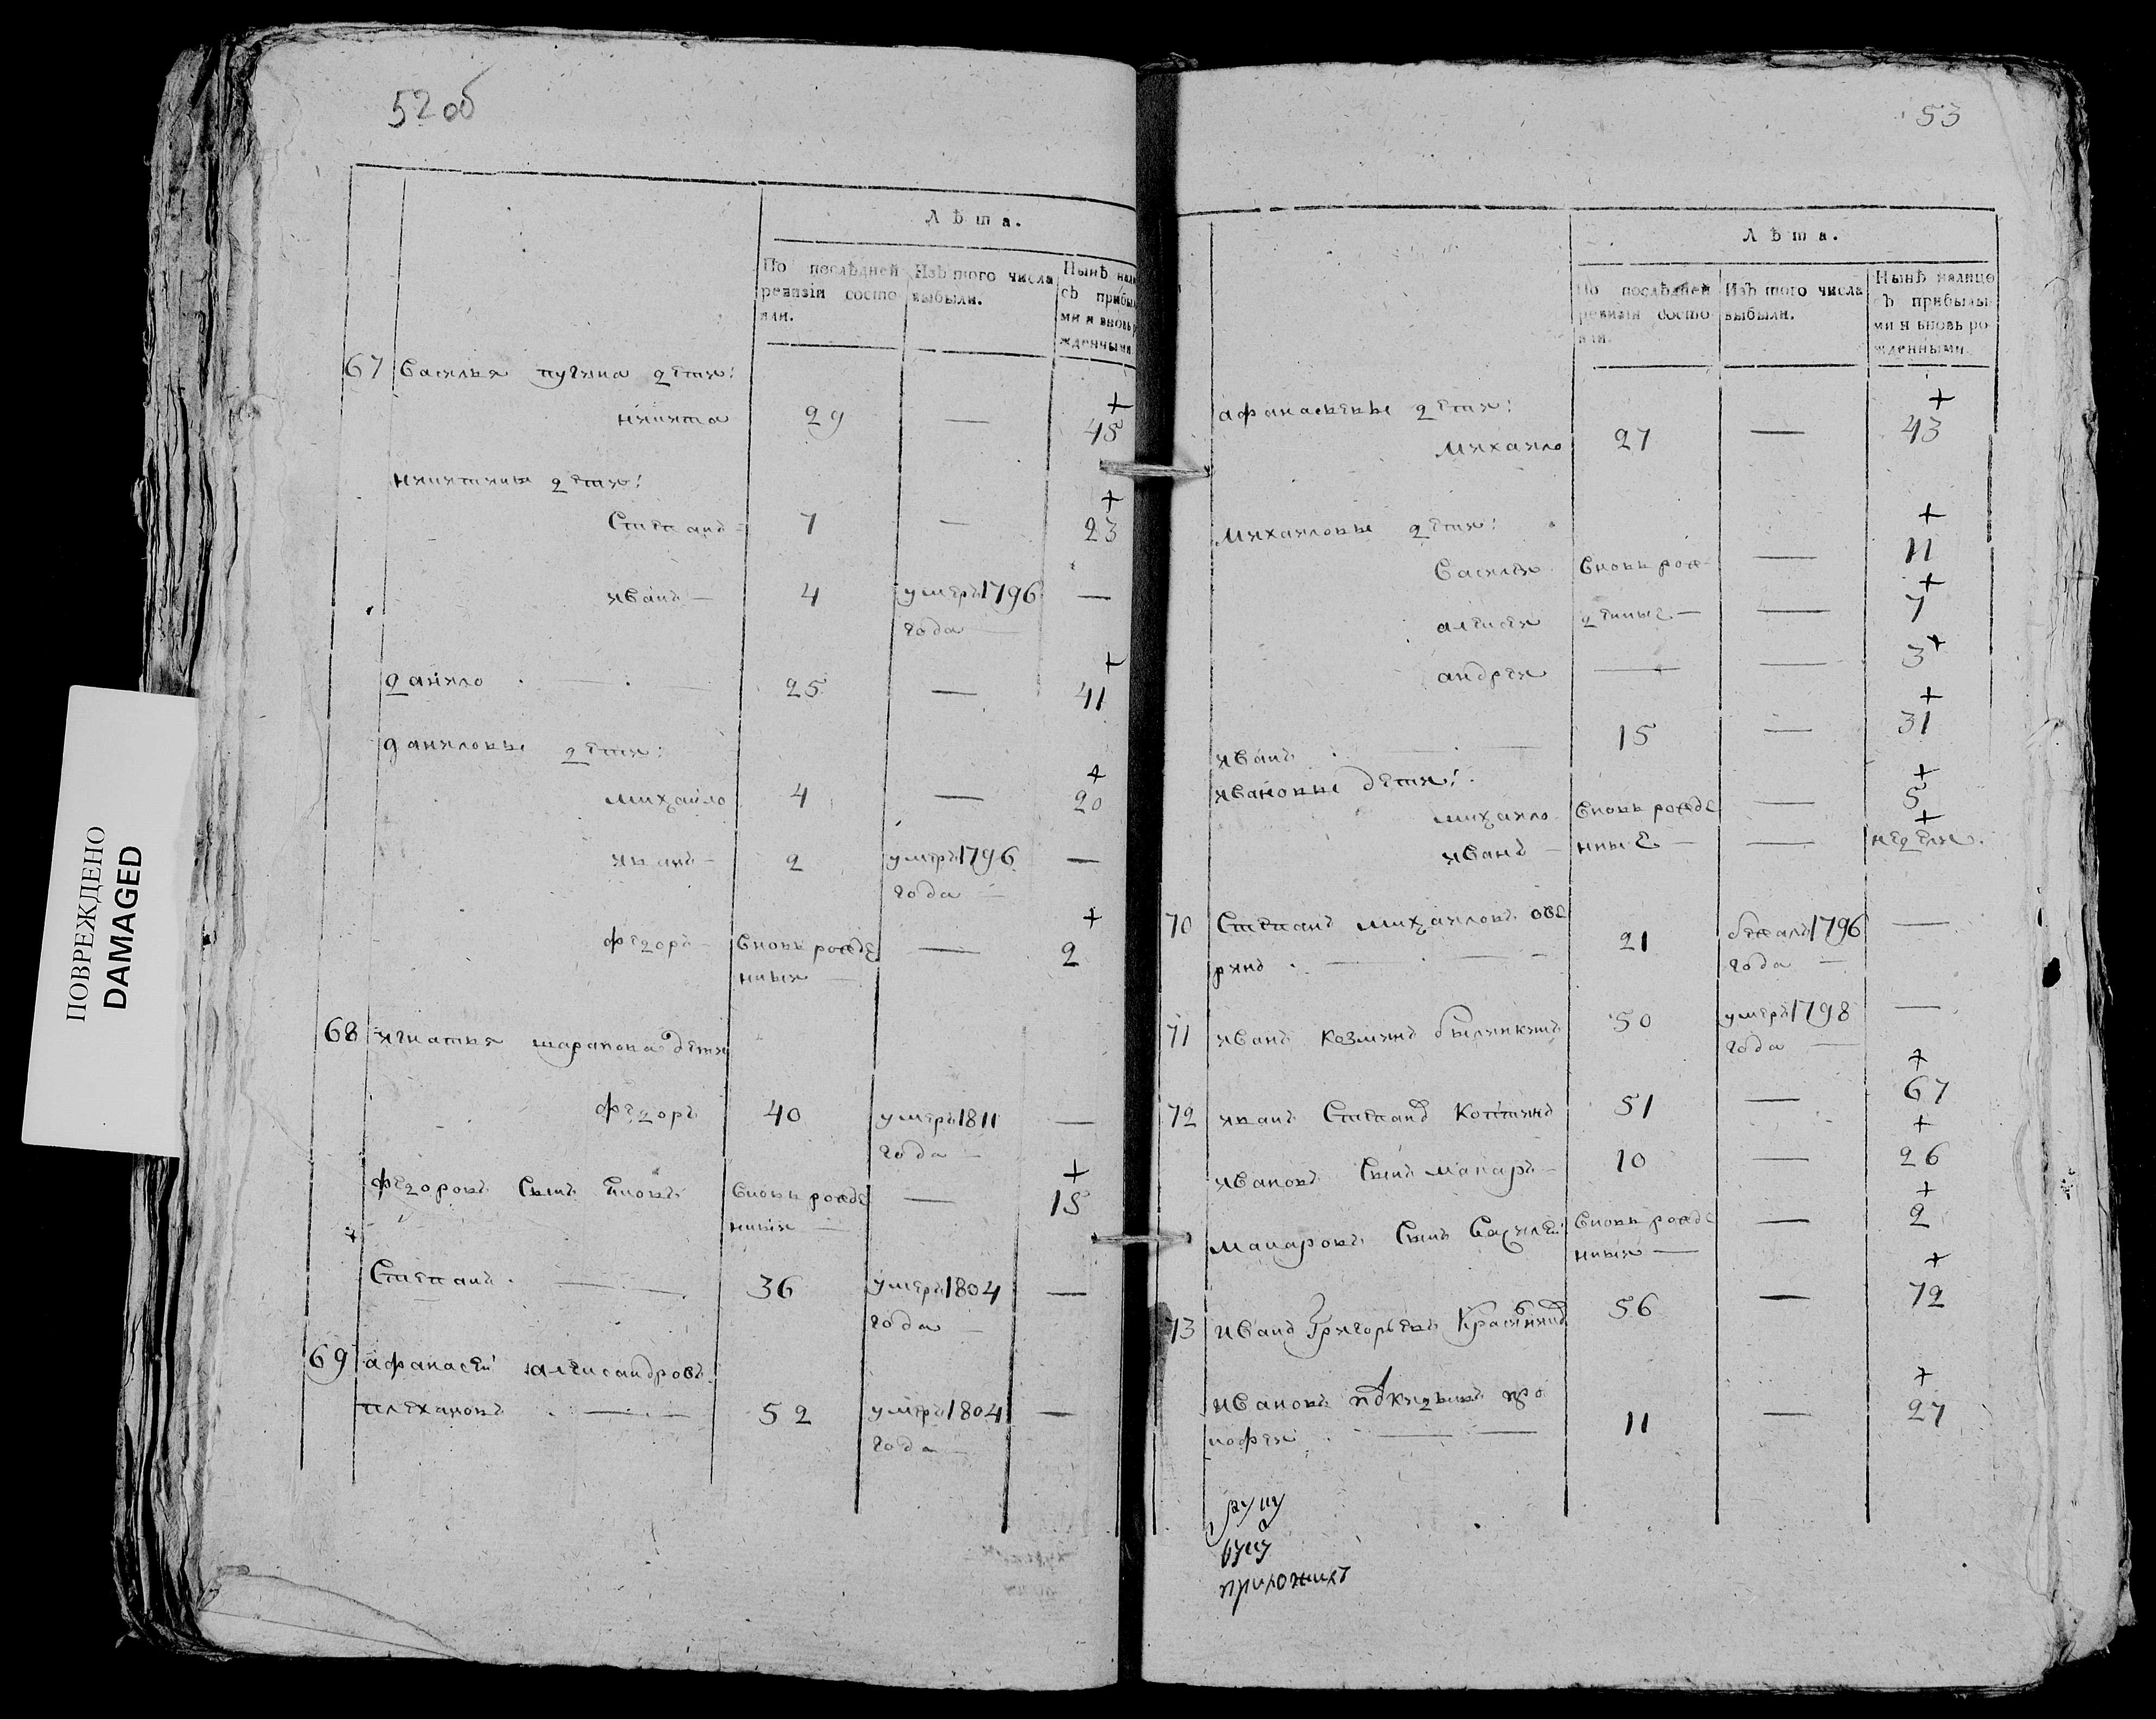 52 об
Лѣта.
По послѣдней ревизіи состояли.
Изъ того числа выбыли.
Нынѣ налицо съ прибылыми и вновь рожденными.
67 Василья пугина дети:
никита 29 — + 45
никитины дети:
Степанъ 7 — + 23
иванъ 4 умеръ 1796 года —
данило 25 — + 41
даниловы дети:
михайло 4 — + 20
иванъ 2 умеръ 1796 года —
федоръ вновь рожденныи — + 2
68 игнатья шарапова дети
федоръ 40 умеръ 1811 года —
федоровъ сынъ вновь рожденныи — + 15
Степанъ 36 умеръ 1804 года —
69 афанасей александровъ
плехановъ 52 умеръ 1804 года —
ПОВРЕЖДЕНО
DAMAGED
53
Лѣта.
По послѣдней ревизіи состояли.
Изъ того числа выбыли.
Нынѣ налицо съ прибылыми и вновь рожденными.
афанасьевы дети:
михаило 27 — + 43
михаиловы дети:
василеи вновь рож — + 11
алексеи денные — + 7
андреи — — 3 +
иванъ 15 — + 31
ивановы дети:
михаило вновь рожде — + 5
иванъ нные — + недели.
70 Степанъ михаиловъ
21 бежалъ 1796 года —
71 иванъ козминъ 50 умеръ 1798 года —
72 иванъ Степанов 51 — + 67
ивановъ сынъ макаръ 10 — + 26
макаровъ сынъ василей вновь рожденныи — + 2
73 иванъ григорьевъ 56 — + 72
ивановъ про
кофеи 11 — + 27
руку
приложилъ